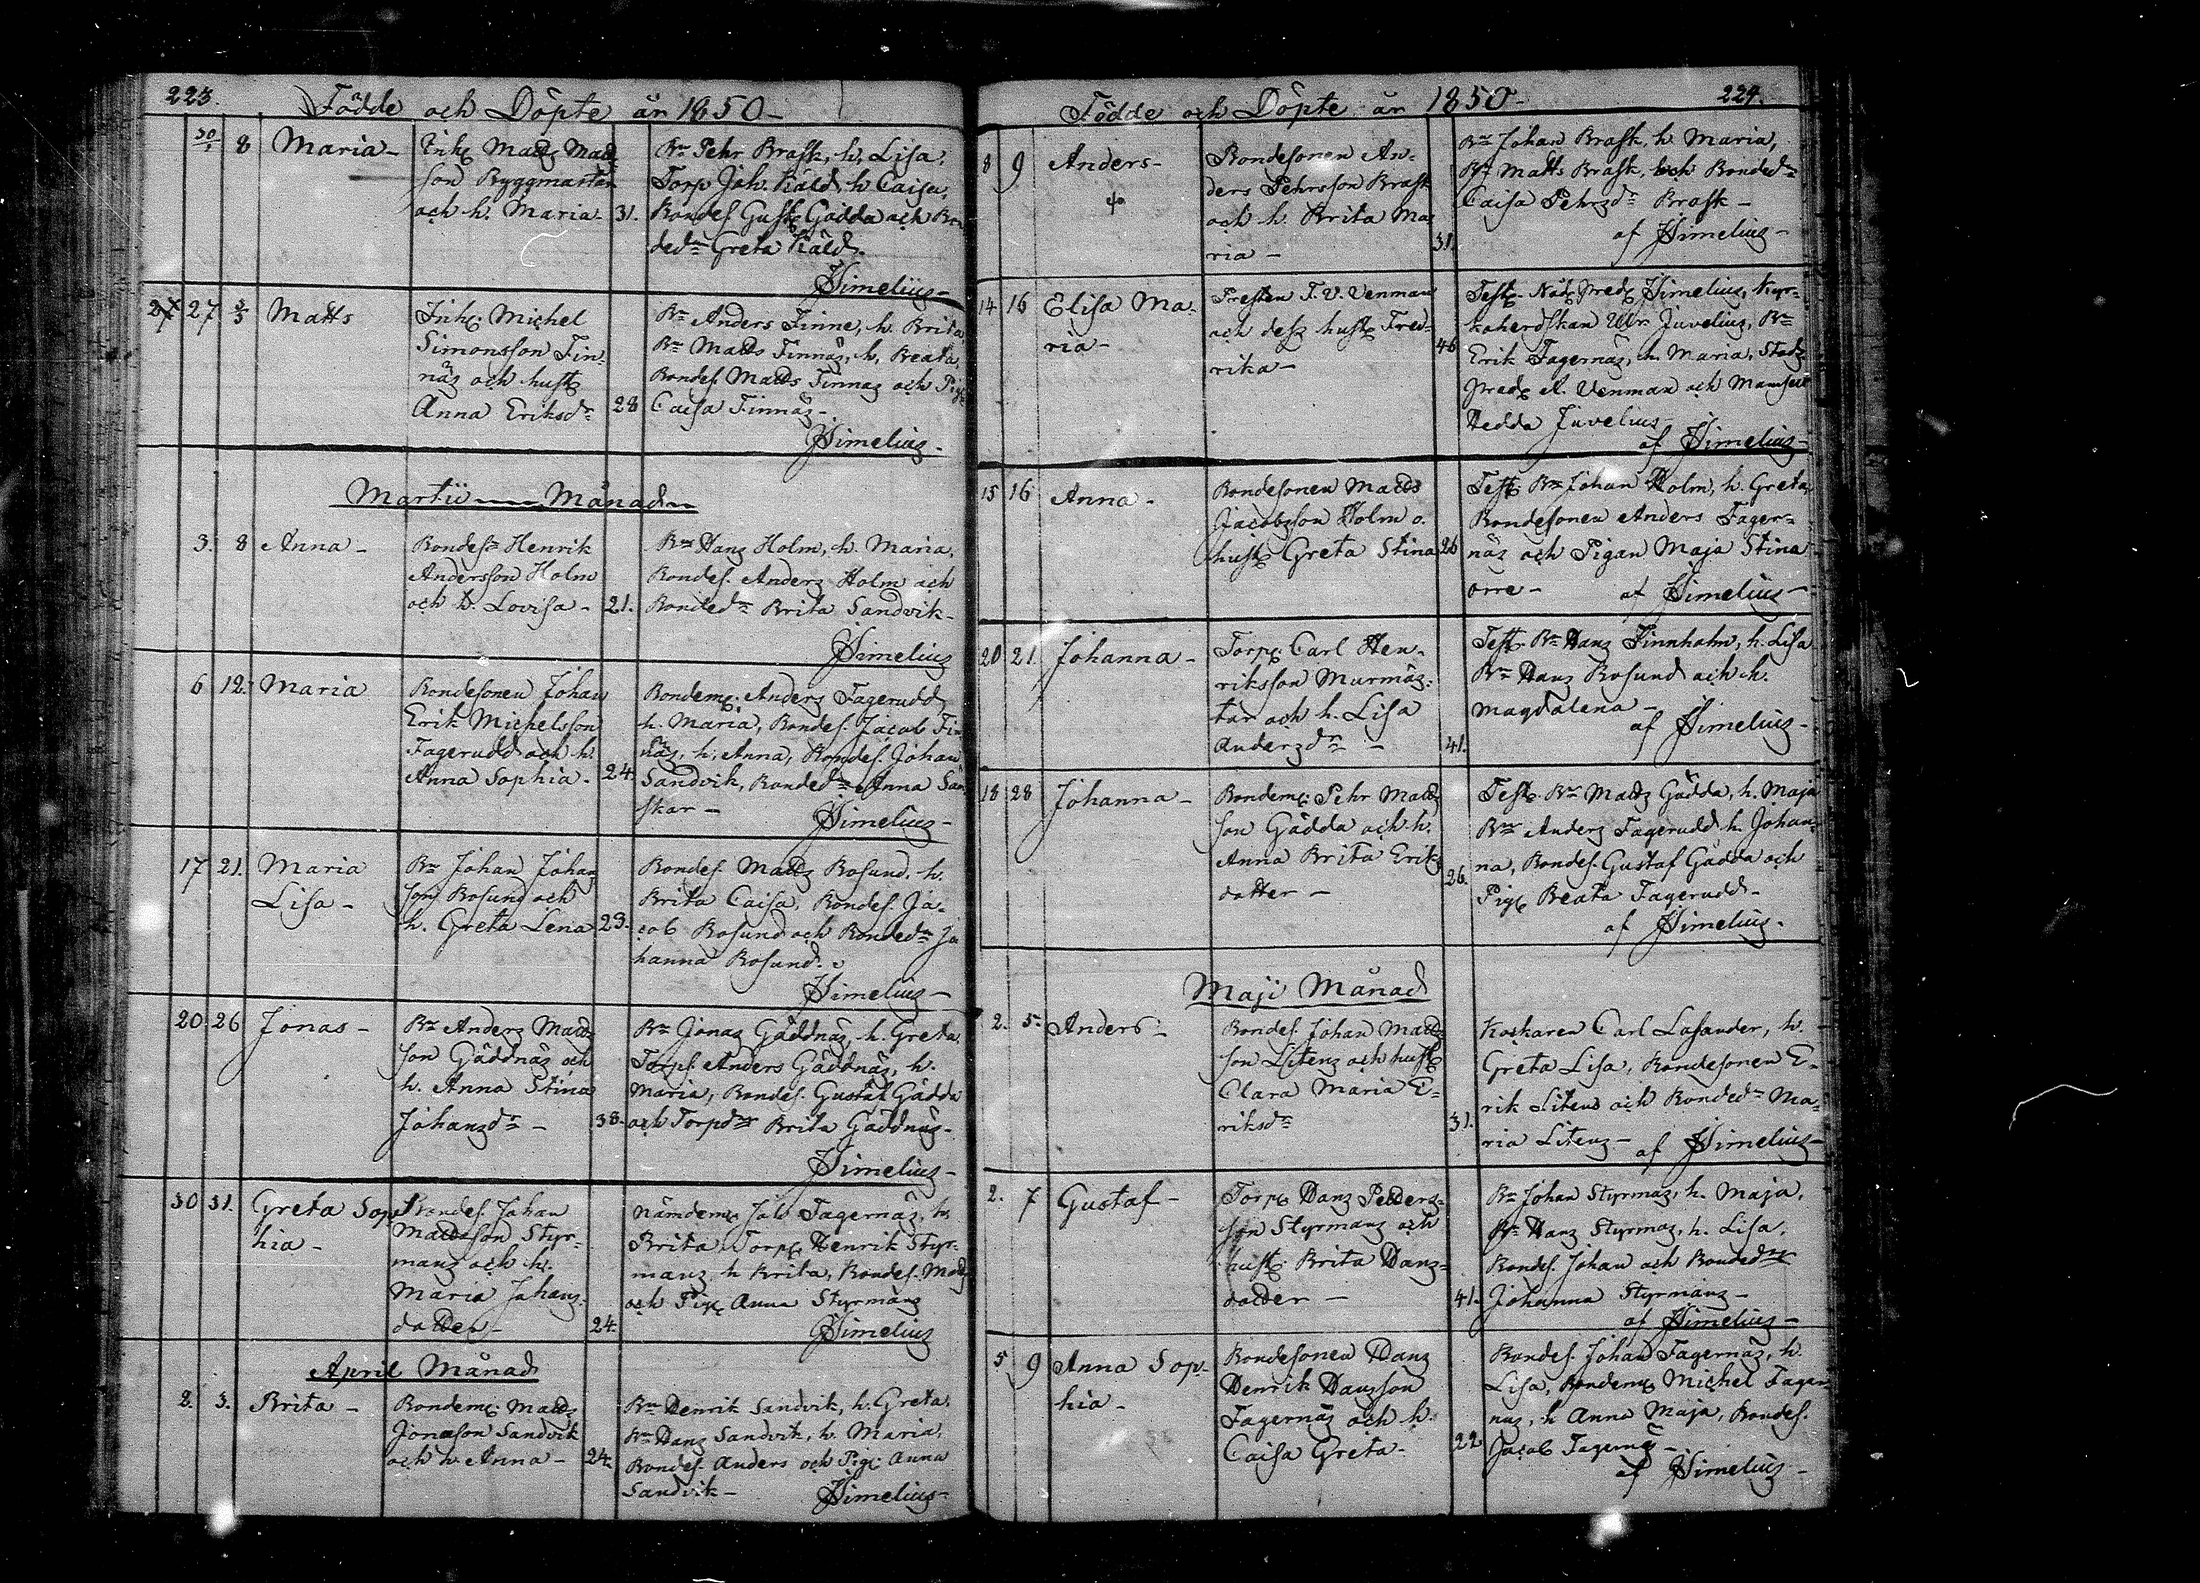 223.
Födde och Döpte år 1850 –
30/1 8 Maria –
Inh. Matts Matts
son Byggmästar
och h. Maria 31.
Br Pehr Brask, h. Lisa,
Torp. Joh. Käld, h. Caisa,
Bondes. Gust. Gädda och Bon
dedr Greta Käld.
Simelius –
27 27 3/3 Matts
Inh. Michel
Simonsson Fin-
näs och hust.
Anna Eriksdr 28
Br Anders Finne, h. Brita
Br Matts Finnäs, h. Beata,
Bondes. Matts Finnäs och Pig.
Caisa Finnäs –
Simelius –
Martii Månad
3. 8 Anna –
Bondes. Henrik
Andersson Holm
och h. Lovisa – 21.
Br Hans Holm, h. Maria,
Bondes. Anders Holm och
Bondedr Brita Sandvik –
Simelius
6 12. Maria
Bondesonen Johan
Erik Michelsson
Fagerudd och h.
Anna Sophia – 24.
Bondem. Anders Fagerudd
h. Maria, Bondes. Jacob Fin
näs, h. Anna, Bondes. Johan
Sandvik, Bondedr Anna San
skar –
Simelius –
17 21. Maria
Lisa –
Br Johan Johan
son Bosund och
h. Greta Lena 23.
Bondes. Matts Bosund, h.
Brita Caisa, Bondes. Ja-
cob Bosund och Bondedr Jo
hanna Bosund.
Simelius –
20 26 Jonas –
Br Anders Matts
son Gäddnäs och
h. Anna Stina
Johansdr – 38.
Br Jonas Gäddnäs, h. Greta
Torp. Anders Gäddnäs, h.
Maria, Bondes. Gustaf Gädda
och Torpdr Brita Gäddnäs –
Simelius –
30 31. Greta Sop
hia –
Bondes. Johan
Mattsson Styr-
mans och h.
Maria Johans-
dotter – 24.
Nämdem. Joh Fagernäs, h.
Brita, Torp. Henrik Styr-
mans h Brita, Bondes. Matts
och Pig. Anna Styrmans
Simelius
April Månad
2. 3. Brita –
Bondem. Matts
Jonasson Sandvik
och h. Anna – 24.
Br Henrik Sandvik, h. Greta,
Br Hans Sandvik, h. Maria,
Bondes. Anders och Pig. Anna
Sandvik –
Simelius –
224.
Födde och Döpte år 1850 –
8 9 Anders –
Bondesonen An-
ders Pehrsson Brask
och h. Brita Ma
ria – 31.
Br Johan Brask, h. Maria,
Br Matts Brask, och Bondedr
Caisa Pehrsdr Brask –
af Simelius –
14 16 Elisa Ma-
ria –
Presten F. V. Venman
och dess hust. Fred-
rika – 46
Test. Nåd. Pred. Simelius, Kyr-
koherdskan Ulr. Juvelius, Br
Erik Fagernäs, h. Maria, Stads
Pred. A. Venman och Mamsell
Hedda Juvelius
af Simelius –
15 16 Anna –
Bondesonen Matts
Jacobsson Holm o.
hust. Greta Stina 26
Test. Br Johan Holm, h. Greta,
Bondesonen Anders Fager-
näs och Pigan Maja Stina
orre – af Simelius –
20 21. Johanna –
Torp. Carl Hen-
riksson Murmäs-
tar och h. Lisa
Andersdr – 41.
Test. Br Hans Finnholm, h. Lisa
Br Hans Bosund och h.
Magdalena –
af Simelius –
18 28 Johanna –
Bondem. Pehr Matts
son Gädda och h.
Anna Brita Eriks
dotter – 26.
Test. Br Matts Gädda, h. Maja
Br Anders Fagerudd h. Johan-
na, Bondes. Gustaf Gädda och
Pig. Beata Fagerudd –
af Simelius –
Maji Månad
2. 5. Anders –
Bondes. Johan Matts
son Litens och hust.
Clara Maria E-
riksdr 31.
Koskaren Carl Lasander, h.
Greta Lisa, Bondesonen E-
rik Litens och Bondedr Ma-
ria Litens – af Simelius –
2. 7 Gustaf –
Torp. Hans Petters-
son Styrmans och
hust. Brita Hans-
dotter – 41.
Br Johan Styrmans, h. Maja,
Br Hans Styrmas, h. Lisa,
Bondes. Johan och Bondedr
Johanna Styrmans –
af Simelius –
5 9 Anna Sop-
hia –
Bondesonen Hans
Henrik Hansson
Fagernäs och h.
Caisa Greta – 22
Bondes. Johan Fagernäs, h.
Lisa, Bondem. Michel Fager
näs, h Anna Maja, Bondes.
Jacob Fagernäs –
af Simelius –